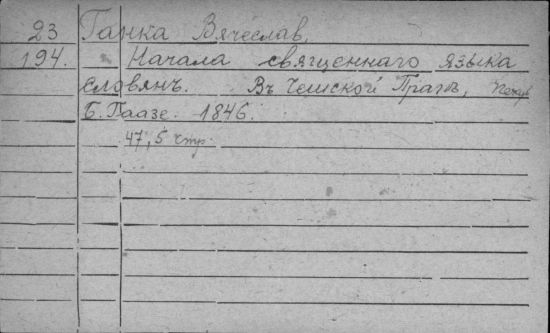 23 Ганка Вячеслав.
194. Начала священнаго языка
словянъ. Въ Чешской Прагѣ,
Б. Гаазе. 1846.
47, 5 стр.